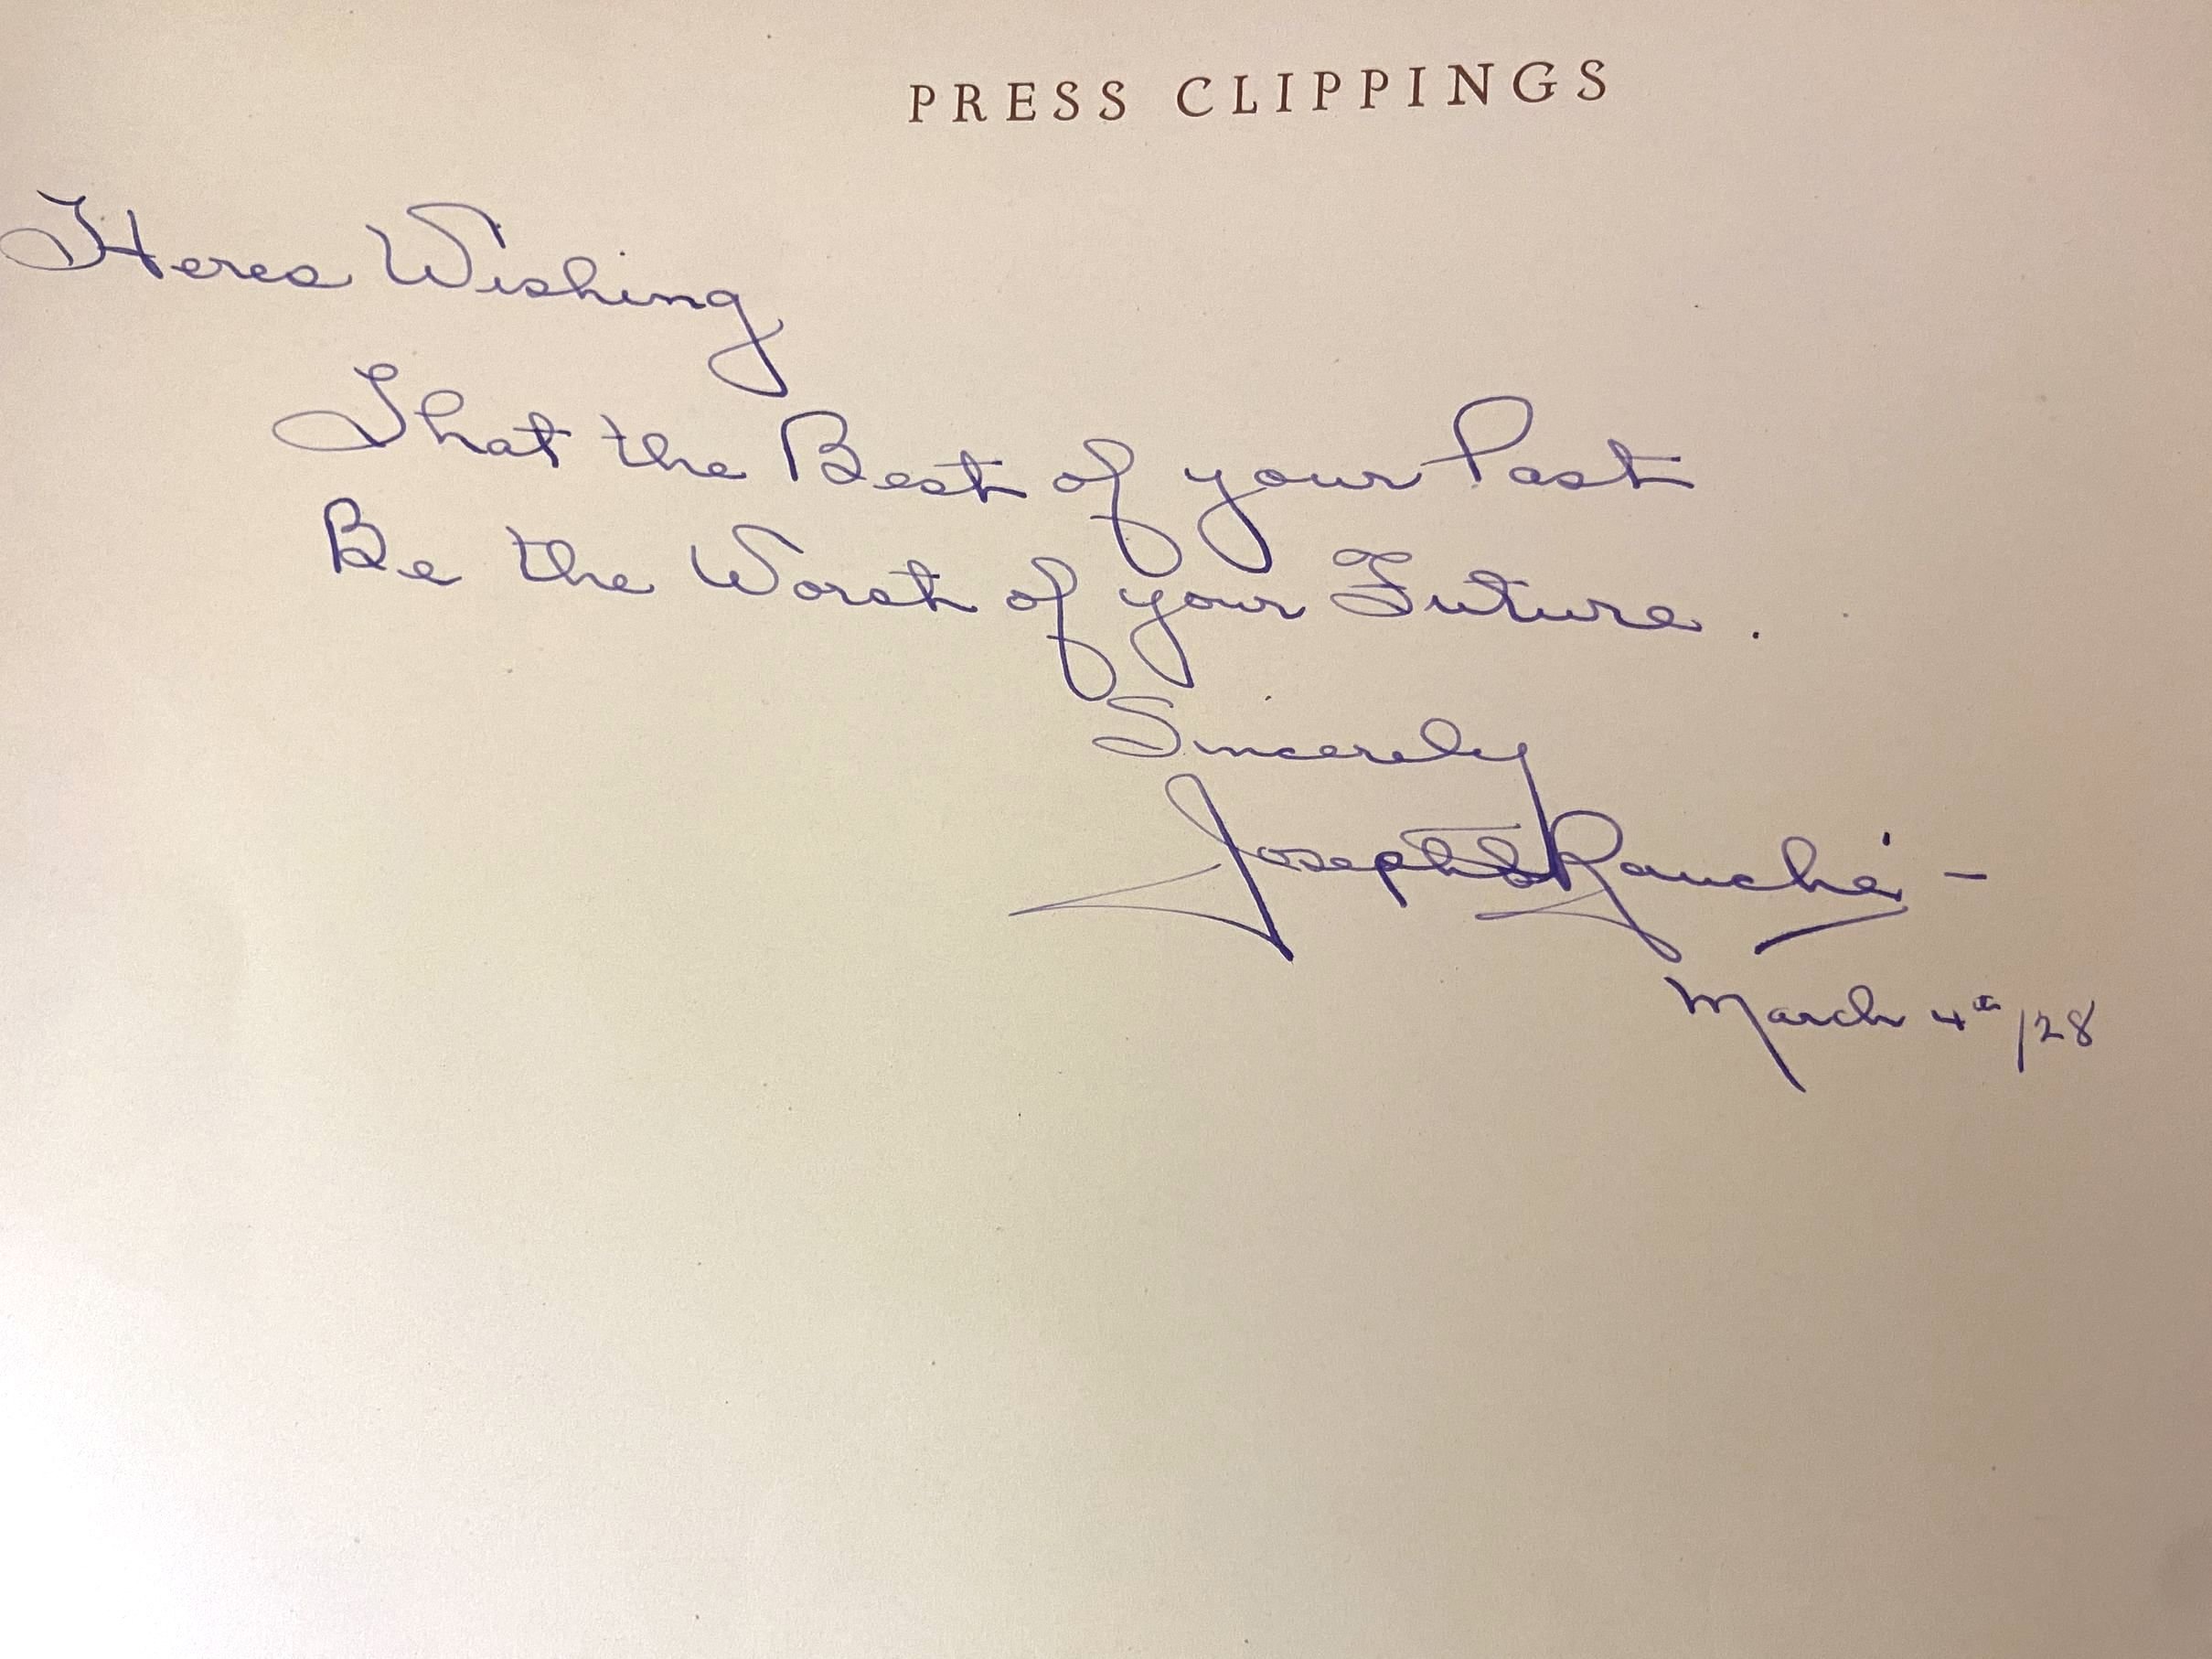 PRESS CLIPPINGS
Heres Wishing
That the Best of your Past
Be the Worst of your Future.
Sincerely
Joseph Rauché -
March 4th/28